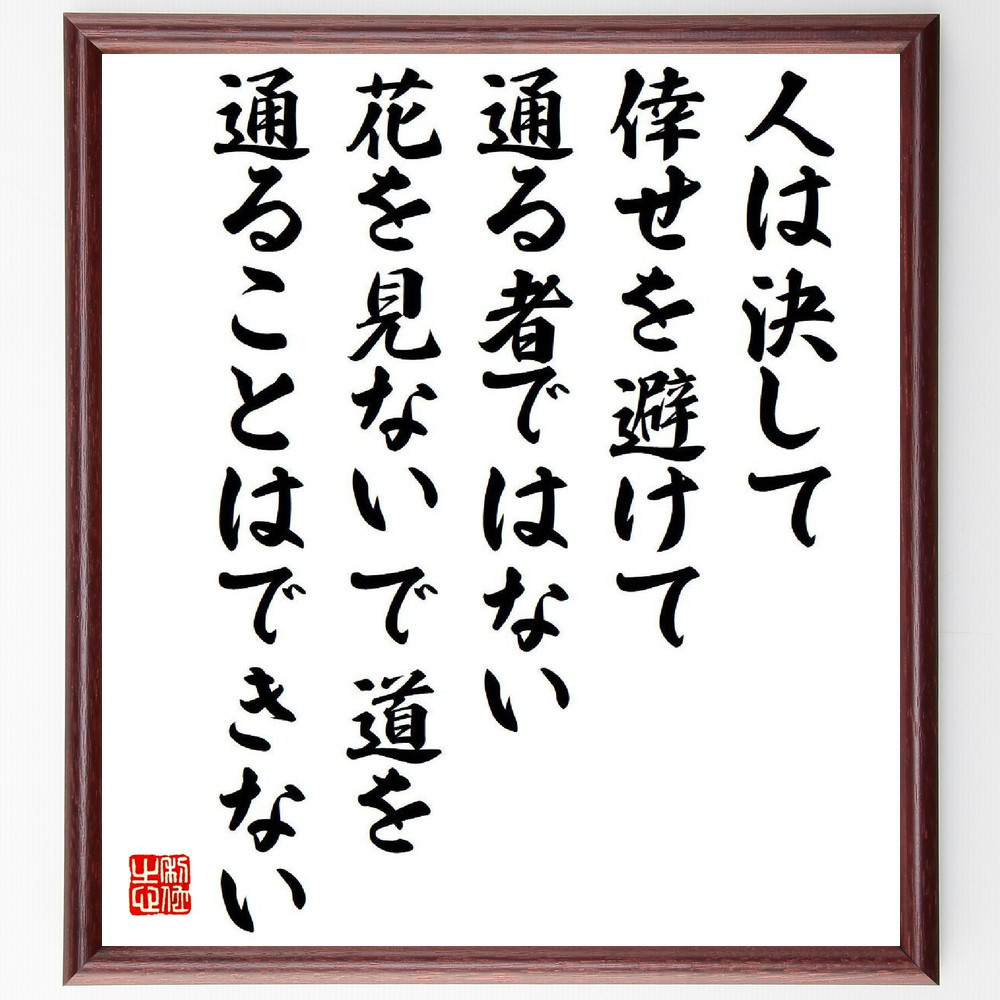 人は決して
倖せを避けて
通る者ではない
花を見ないで道を
通ることはできない